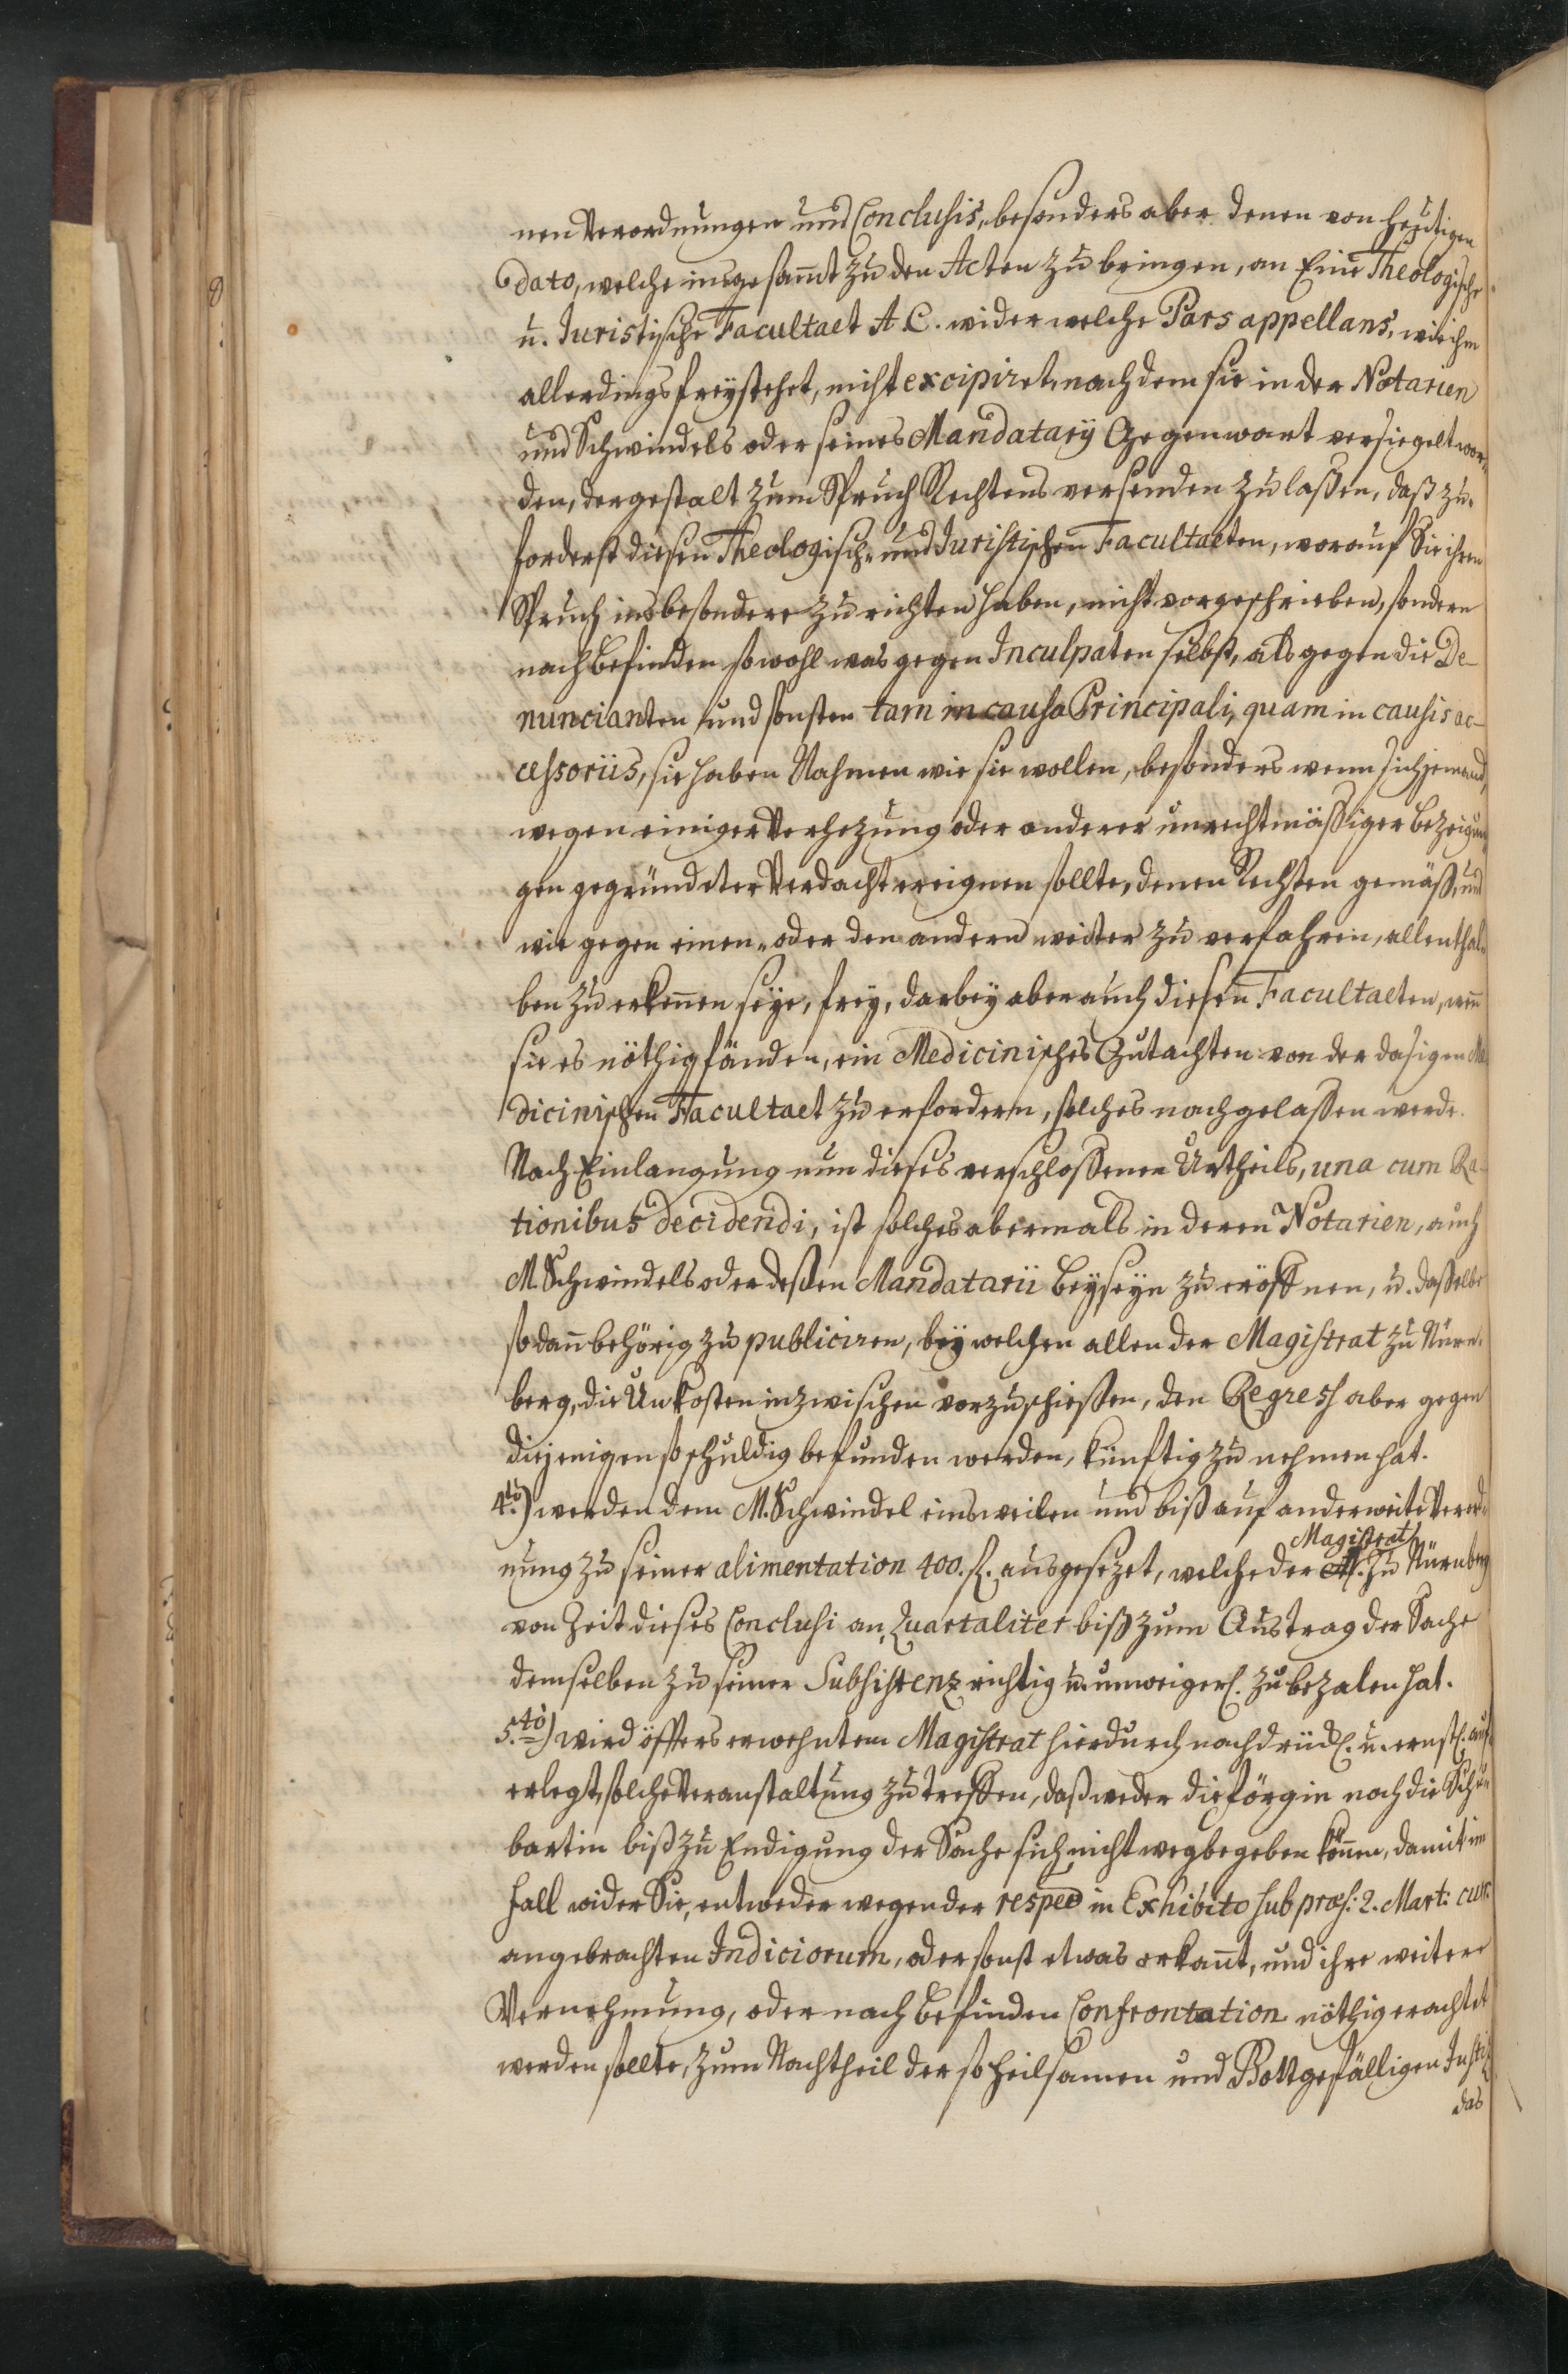 nen Verordnungen und Conclusis, besonders aber denen von heutigen
dato, welche insgesamt zu den Acten zu bringen, an Eine Theologische
u. Juristische Facultaet A. C. wider welche Pars appellans, wie ihm
allerdings freystehet, nicht excipiret, nachdem sie in der Notarien
und Schwindels oder seines Mandatarij Gegenwart versiegelt wor„
den, dergestalt zum Spruch Rechtens versenden zu laßen, daß zu„
forderst diesen Theologisch„ und Juristischen Facultaeten, worauf Sie ihren
Spruch insbesondere zu richten haben, nicht vorgeschrieben, sondern
nach befinden sowohl was gegen Inculpaten selbst, als gegen die De-
nuncianten und sonsten tam in causa Principali, quam in causis ac-
cessoriis, sie haben Nahmen wie sie wollen, besonders wenn sich jemand
wegen einiger Verhezung oder anderer unrechtmäßiger bezeigun„
gen gegründeter Verdacht ereignen sollte, denen Rechten gemäß, und
wie gegen einen„ oder den andern weiter zu verfahren, allenthal„
ben zu erkennen seye, frey, darbey aber auch diesen Facultaeten, wenn
sie es nöthig fänden, ein Medicinisches Gutachten von der dasigen Me
dicinischen Facultaet zu erfordern, solches nachgelaßen werde.
Nach Einlangung nun dieses verschloßenen Urtheils, una cum Ra-
tionibus decidendi, ist solches abermals in deren Notarien, auch
M. Schwindels oder deßen Mandatarii Beyseyn zu eröffnen, u. daßelbe
sodann behörig zu publiciren, bey welchen allen der Magistrat zu Nürn„
berg, die Unkosten inzwischen vorzuschießen, den Regress aber gegen
diejenigen so schuldig befunden werden, künftig zu nehmen hat.
4to.) werden dem M. Schwindel einsweilen und biß auf anderweite Verord„
nung zu seiner alimentation 400. fl. ausgesezet, welche der Magistrat zu Nürnberg
von Zeit dieses Conclusi an, Quartaliter biß zum Austrag der Sache
demselben zu seiner Subsistenz richtig u. unweigerl. zu bezalen hat.
5.to) wird öffters erwehntem Magistrat hierdurch nachdrückl. u. ernstl. auf„
erlegt, solche Veranstaltung zu treffen, daß weder die Förgin noch die Schu„
bartin biß zu Endigung der Sache sich nicht wegbegeben können, damit im
fall wider Sie, entweder wegen der respec in Exhibito sub præs: 2. Mart: cur:
angebrachten Indiciorum, oder sonst etwas erkannt, und ihre weitere
Vernehmung, oder nach befinden Confrontation nöthig erachtet
werden sollte, zum Nachtheil der so heilsamen und Gottgefälligen Justiz
das